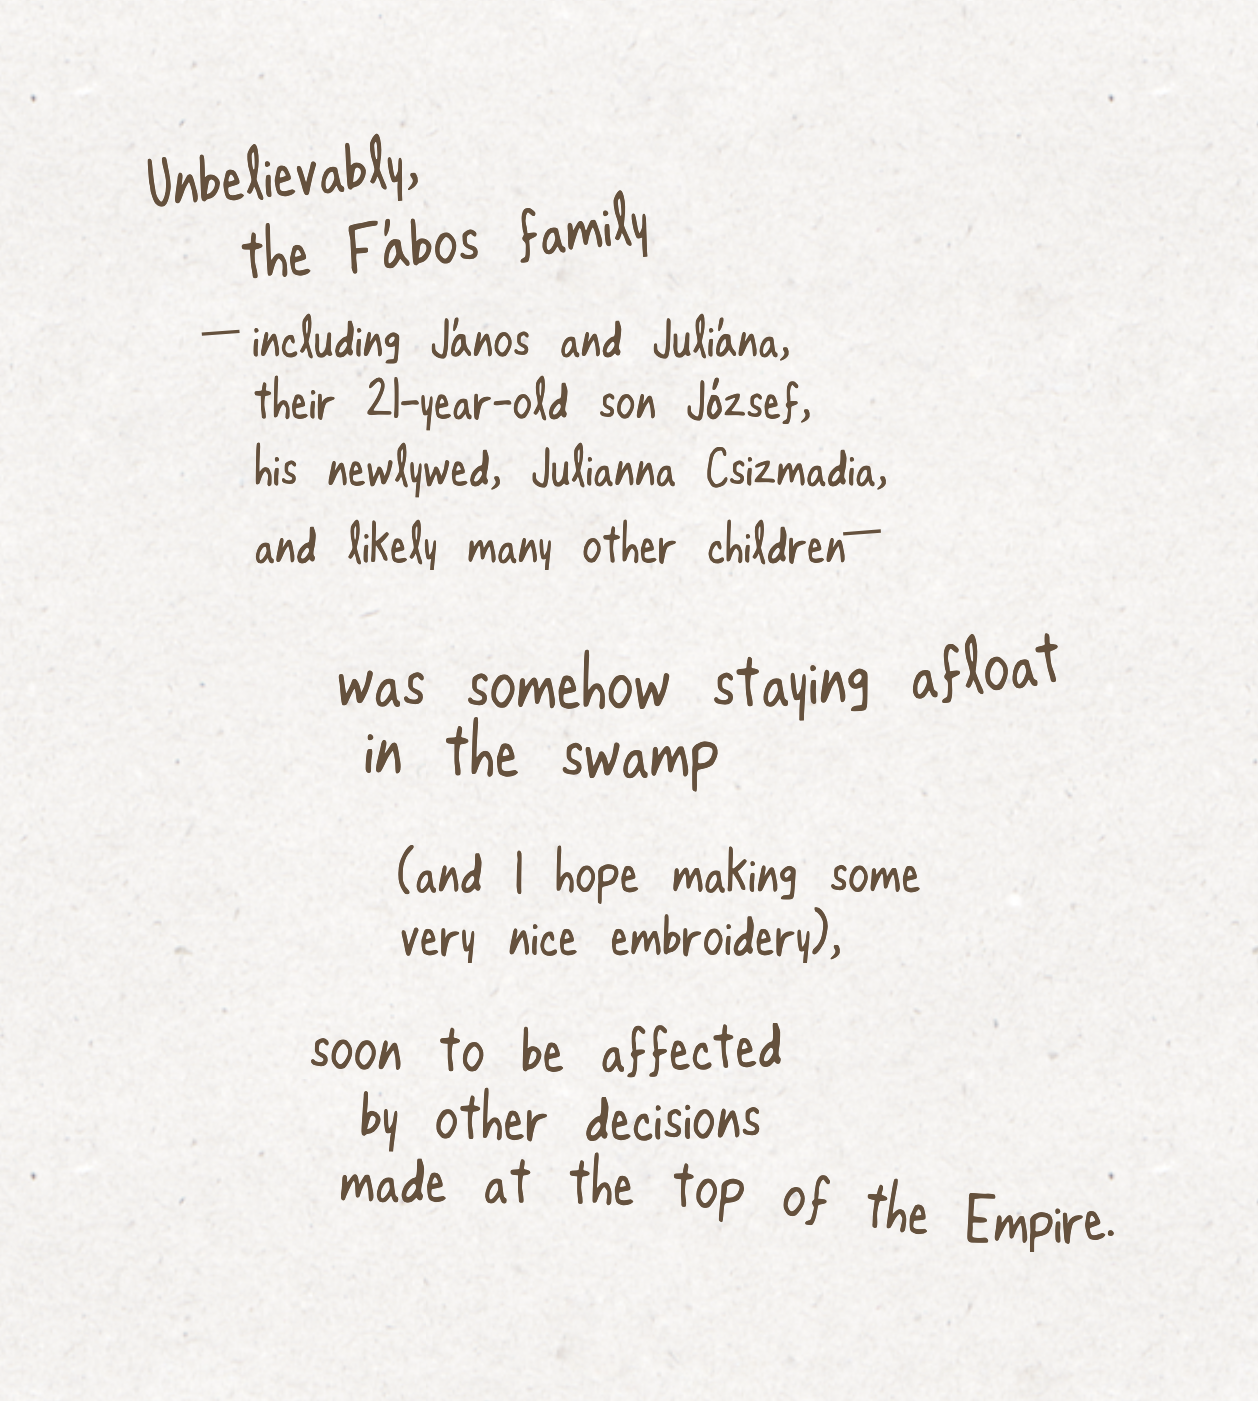 Unbelievably,
the Fábos family
— including János and Juliána,
their 21-year-old son József,
his newlywed, Julianna Csizmadia,
and likely many other children—
was somehow staying afloat
in the swamp
(and I hope making some
very nice embroidery),
soon to be affected
by other decisions
made at the top of the Empire.